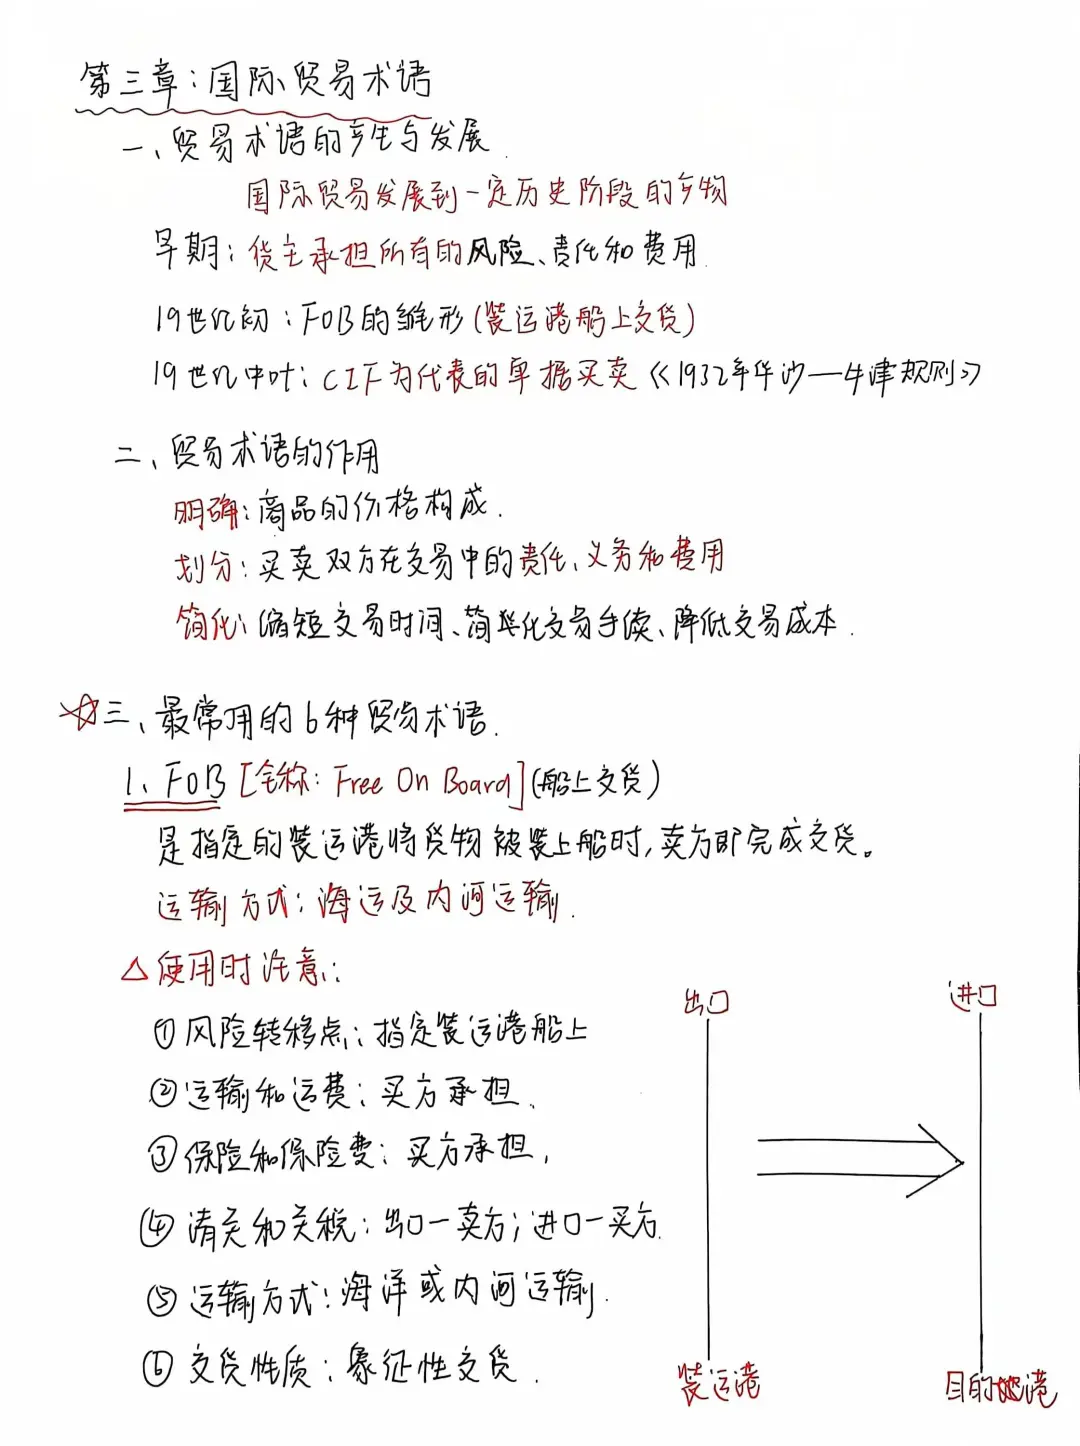 第三章：国际贸易术语
一、贸易术语的产生与发展
国际贸易发展到一定历史阶段的产物
早期：货主承担所有的风险、责任和费用
19世纪初：FOB的雏形(装运港船上交货)
19世纪中叶：CIF为代表的单据买卖《1932年华沙—牛津规则》
二、贸易术语的作用
明确：商品的价格构成.
划分：买卖双方在交易中的责任、义务和费用
简化：缩短交易时间、简单化交易手续、降低交易成本.
☆三、最常用的6种贸易术语.
1、FOB [全称：Free On Board](船上交货)
是指定的装运港将货物被装上船时,卖方即完成交货。
运输方式：海运及内河运输.
△使用时注意：
①风险转移点：指定装运港船上
②运输和运费：买方承担、
③保险和保险费：买方承担,
④清关和关税：出口—卖方；进口—买方.
⑤运输方式：海洋或内河运输.
⑥交货性质：象征性交货.
出口 进口
装运港 目的港